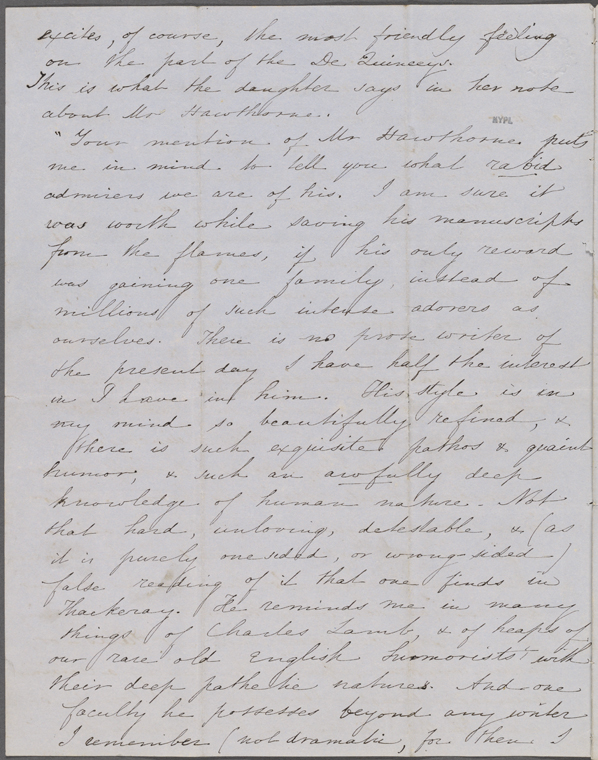 excites, of course, the most friendly feeling
on the part of the De Quinceys.
This is what the daughter says in her note
about Mr Hawthorne.
NYPL
"Your mention of Mr Hawthorne puts
me in mind to tell you what rabid
admirers we are of his. I am sure it
was worth while saving his manuscripts
from the flames, if his only reward
was gaining one family, instead of
millions of such intense adorers as
ourselves. There is no prose writer of
the present day I have half the interest
in I have in him. His style is in
my mind so beautifully refined, &
there is such exquisite pathos & quaint
humor, & such an awfully deep
knowledge of human nature. Not
that hard, unloving, detestable, & (as
it is purely one sided, or wrong-sided)
false reading of it that one finds in
Thackeray. He reminds me in many
things of Charles Lamb, & of heaps of
our rare old English humorists' with
their deep pathetic natures. And one
faculty he possesses beyond any writer
I remember (not dramatic, for then I